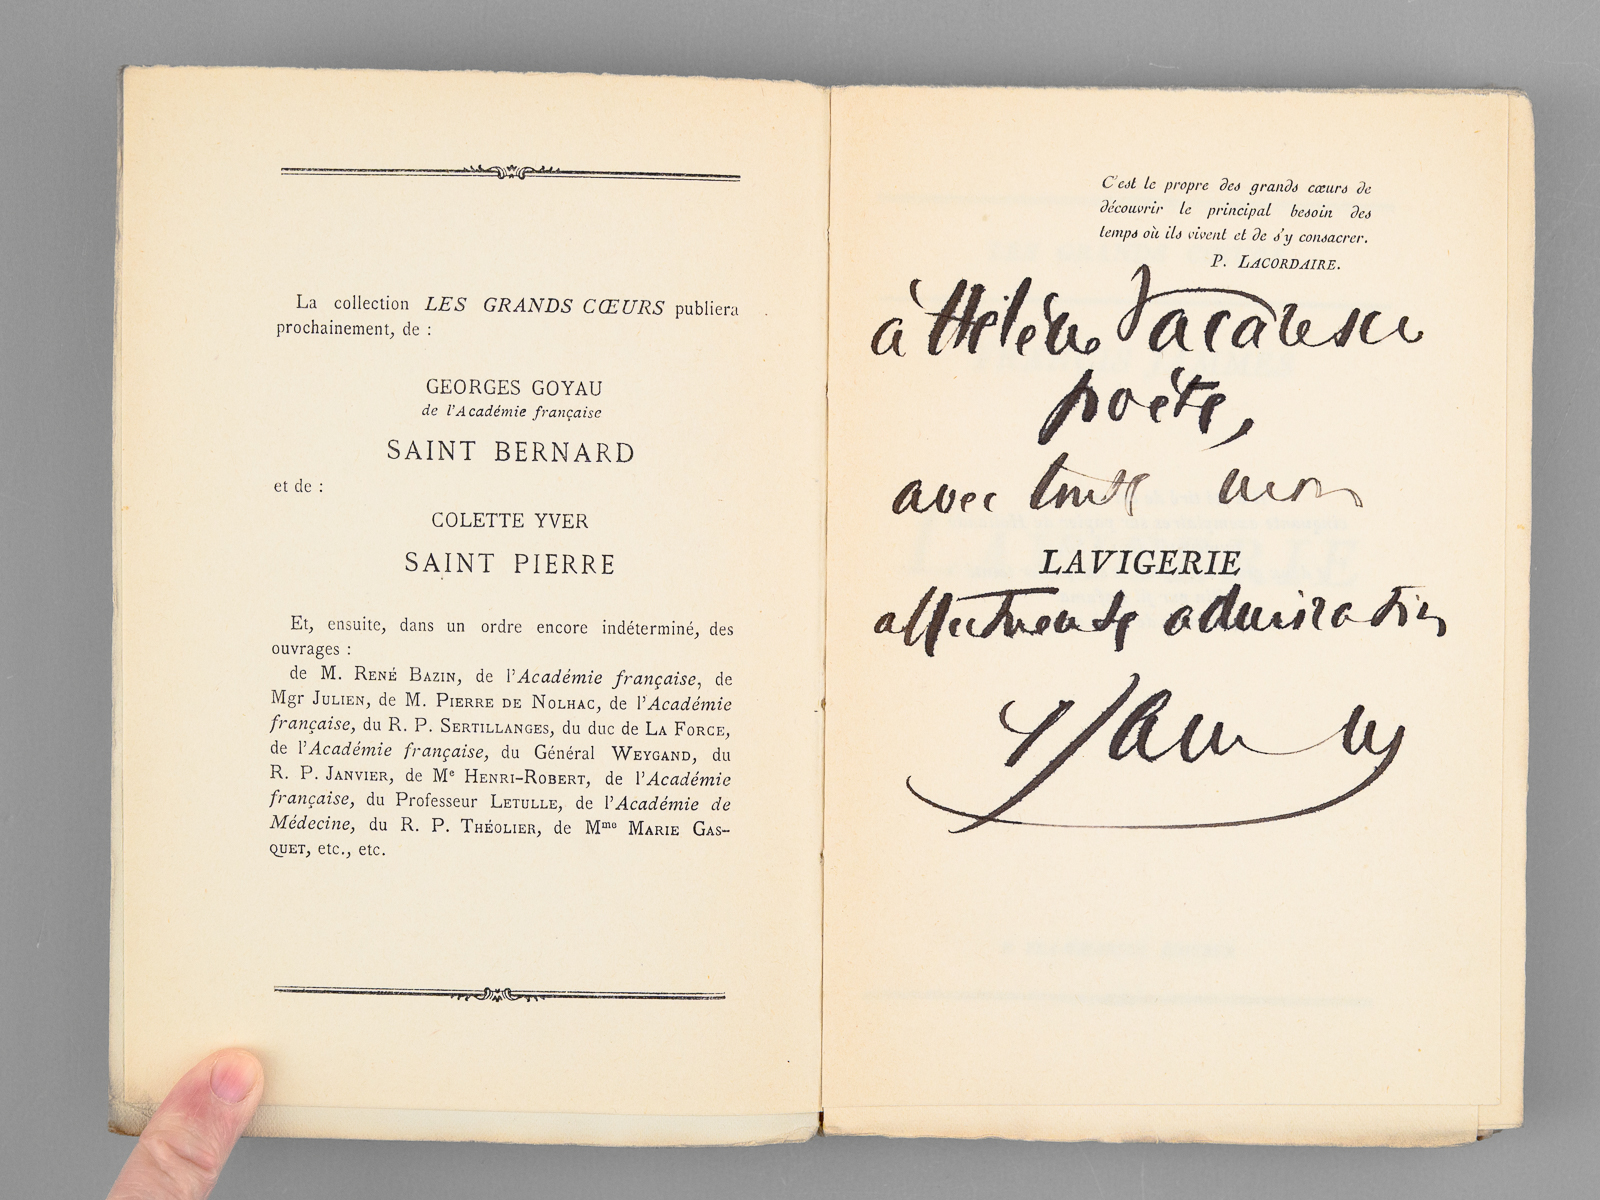 La collection LES GRANDS CŒURS publiera
prochainement, de :
GEORGES GOYAU
de l'Académie française
SAINT BERNARD
et de :
COLETTE YVER
SAINT PIERRE
Et, ensuite, dans un ordre encore indéterminé, des
ouvrages :
de M. RENÉ BAZIN, de l'Académie française, de
Mgr JULIEN, de M. PIERRE DE NOLHAC, de l'Académie
française, du R. P. SERTILLANGES, du duc de LA FORCE,
de l'Académie française, du Général WEYGAND, du
R. P. JANVIER, de Me HENRI-ROBERT, de l'Académie
française, du Professeur LETULLE, de l'Académie de
Médecine, du R. P. THÉOLIER, de Mme MARIE GAS-
QUET, etc., etc.
C'est le propre des grands cœurs de
découvrir le principal besoin des
temps où ils vivent et de s'y consacrer.
P. LACORDAIRE.
à Hélène Vacaresco
poète,
avec toute mon
LAVIGERIE
affectueuse admiration